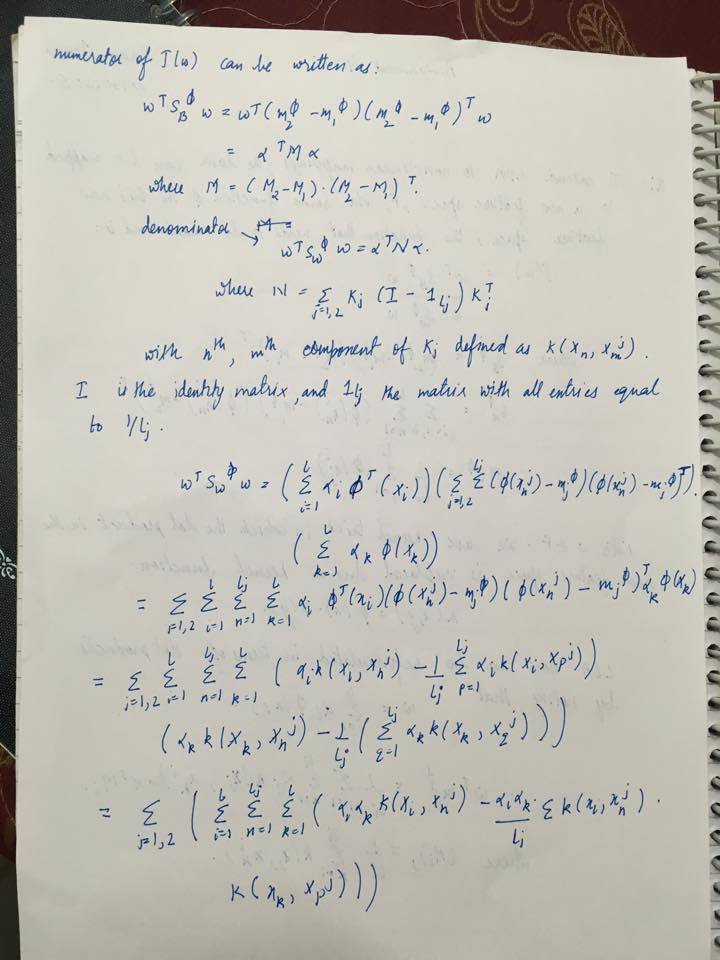 numerator of J(ω) can be written as:
ωᵀ S_B^ϕ ω = ωᵀ (m₂^ϕ - m₁^ϕ) (m₂^ϕ - m₁^ϕ)ᵀ ω
= αᵀ M α
where M = (M₂ - M₁) · (M₂ - M₁)ᵀ.
denominator →
ωᵀ S_ω^ϕ ω = αᵀ N α.
where N = Σ_{j=1,2} K_j (I - 1_{Lj}) K_jᵀ
with nᵗʰ, mᵗʰ component of K_j defined as k(x_n, x_m^j).
I is the identity matrix, and 1_{Lj} the matrix with all entries equal
to 1/L_j.
ωᵀ S_ω^ϕ ω = (Σ_{i=1}^{L} α_i ϕᵀ(x_i)) (Σ_{j=1,2} Σ_{n=1}^{Lj} (ϕ(x_n^j) - m_j^ϕ) (ϕ(x_n^j) - m_j^ϕ)ᵀ).
(Σ_{k=1}^{L} α_k ϕ(x_k))
= Σ_{j=1,2} Σ_{i=1}^{L} Σ_{n=1}^{Lj} Σ_{k=1}^{L} α_i ϕᵀ(x_i) (ϕ(x_n^j) - m_j^ϕ) (ϕ(x_n^j) - m_j^ϕ)ᵀ α_k ϕ(x_k)
= Σ_{j=1,2} Σ_{i=1}^{L} Σ_{n=1}^{Lj} Σ_{k=1}^{L} (α_i k(x_i, x_n^j) - 1/L_j Σ_{p=1}^{Lj} α_i k(x_i, x_p^j))
(α_k k(x_k, x_n^j) - 1/L_j (Σ_{q=1}^{Lj} α_k k(x_k, x_q^j)))
= Σ_{j=1,2} (Σ_{i=1}^{L} Σ_{n=1}^{Lj} Σ_{k=1}^{L} (α_i α_k k(x_i, x_n^j) - α_i α_k / L_j Σ k(x_i, x_n^j) .
k(x_k, x_p^j)))